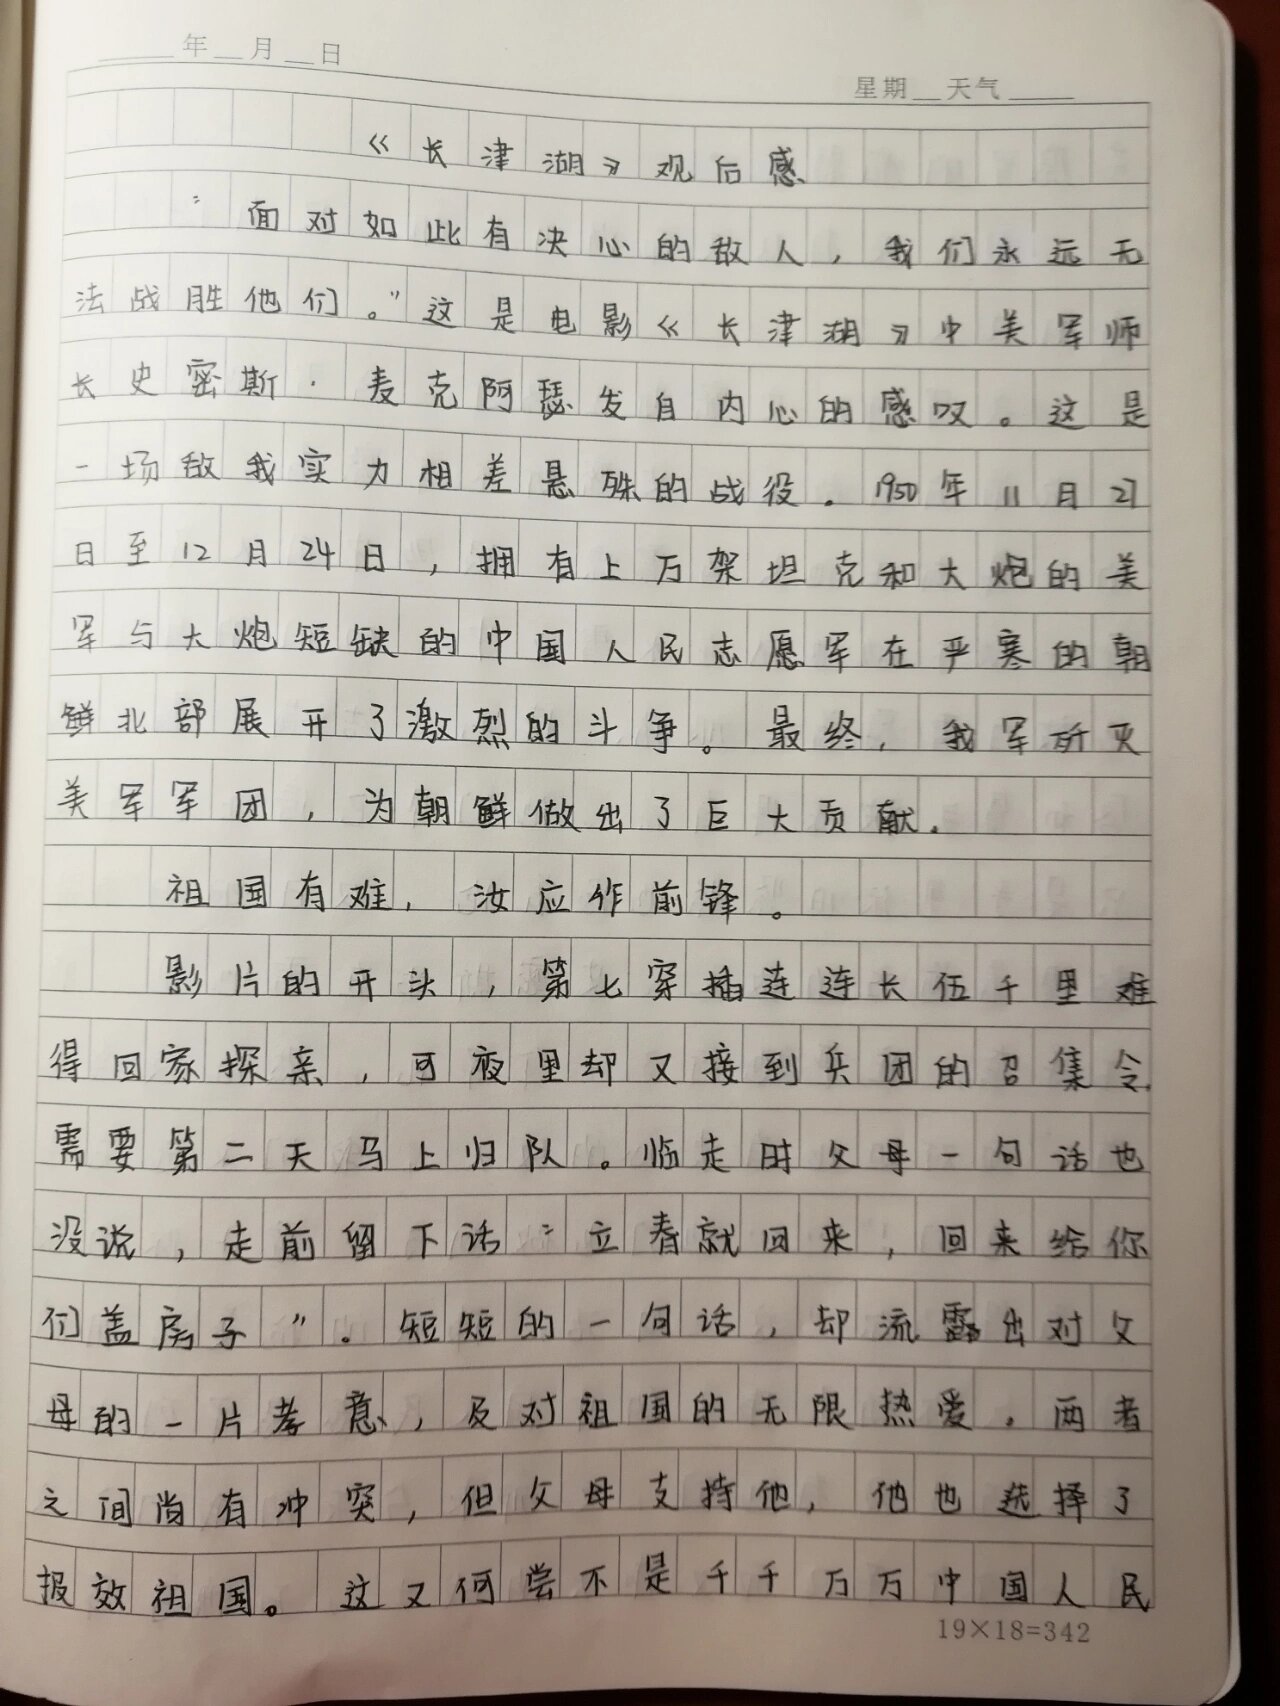 年 月 日
星期 天气
《长津湖》观后感
“面对如此有决心的敌人,我们永远无
法战胜他们。”这是电影《长津湖》中美军师
长史密斯·麦克阿瑟发自内心的感叹。这是
一场敌我实力相差悬殊的战役。1950年11月27
日至12月24日,拥有上万架坦克和大炮的美
军与大炮短缺的中国人民志愿军在严寒的朝
鲜北部展开了激烈的斗争。最终,我军所灭
美军军团,为朝鲜做出了巨大贡献.
祖国有难,汝应作前锋。
影片的开头,第七穿插连连长伍千里难
得回家探亲,可夜里却又接到兵团的召集令,
需要第二天马上归队。临走时父母一句话也
没说,走前留下话“立春就回来,回来给你
们盖房子”。短短的一句话,却流露出对父
母的一片孝意,及对祖国的无限热爱.两者
之间尚有冲突,但父母支持他,他也选择了
报效祖国。这又何尝不是千千万万中国人民
19×18=342